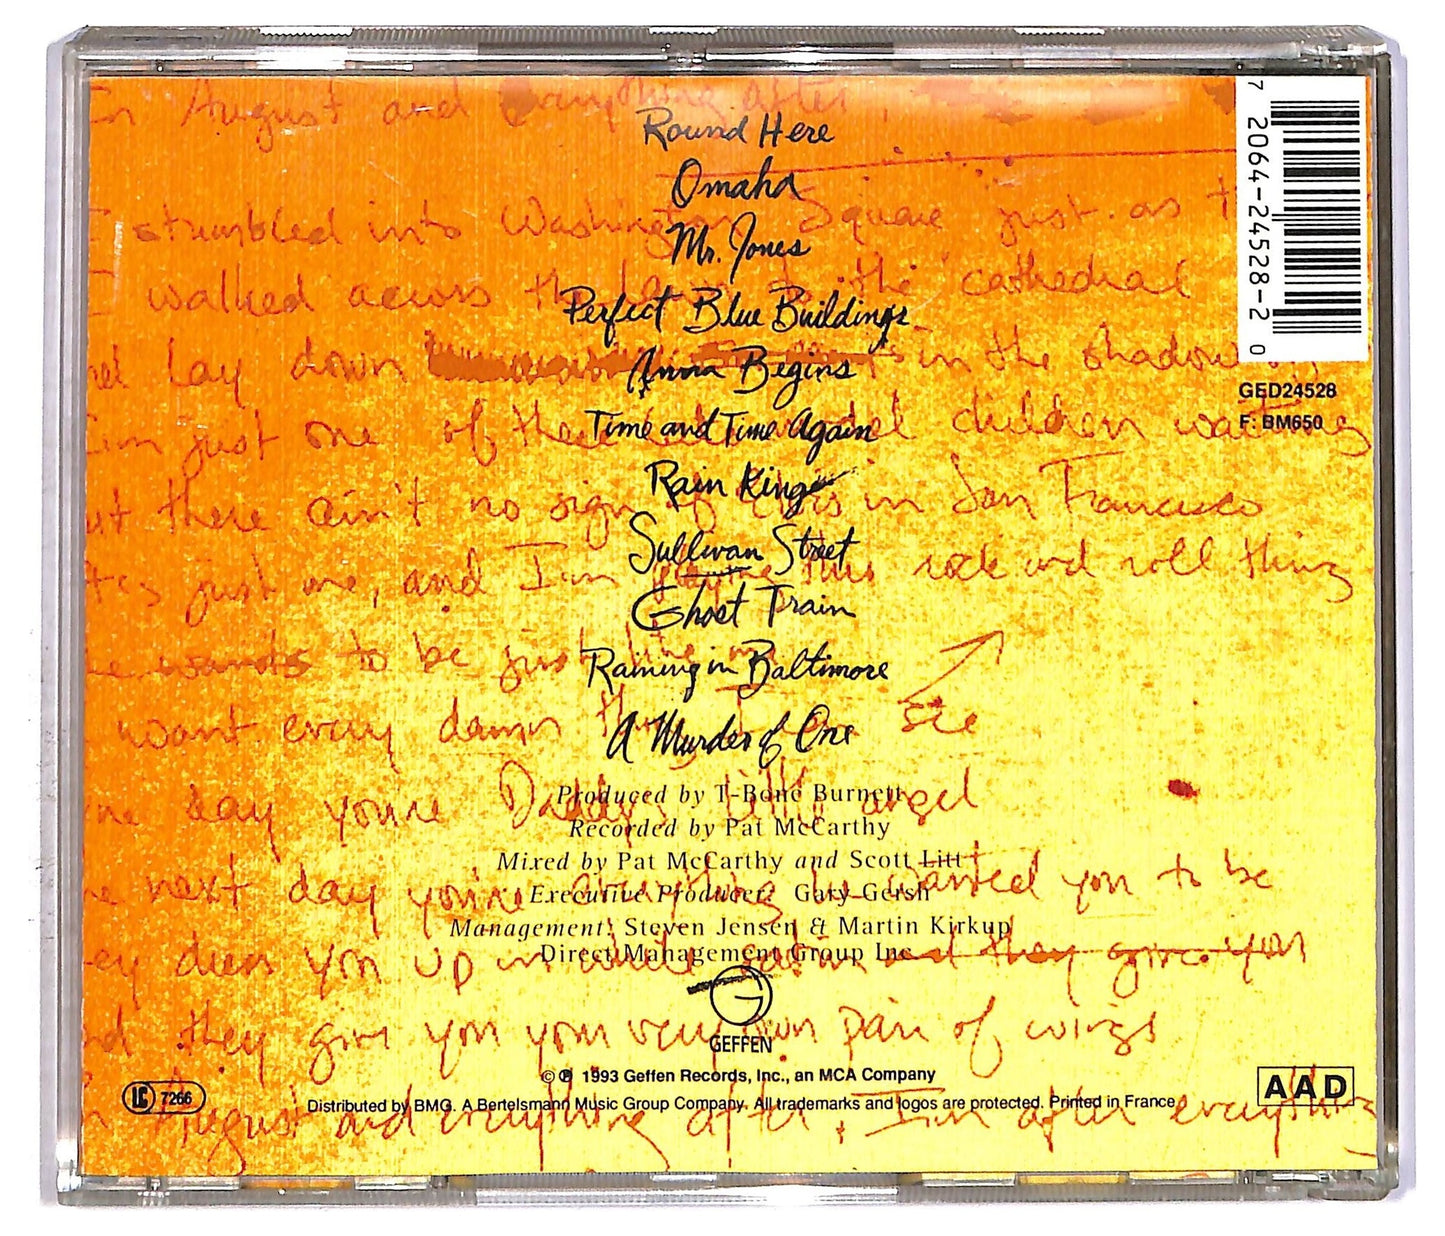 In August and everything after,
Round Here
Omaha
I stumbled into Washington Square just as the
Mr. Jones
I walked across the the cathedral
Perfect Blue Buildings
lay down in the shadow
Anna Begins
GED24528
F: BM650
I'm just one of these children waiting
Time and Time Again
Rain King
but there ain't no sign of in San Francisco
Sullivan Street
It's just me, and I'm playing this rock and roll thing
Ghost Train
wants to be just like me
Raining in Baltimore
want every damn thing I can see
A Murder of One
day you're Daddy's little angel
Produced by T-Bone Burnett
Recorded by Pat McCarthy
Mixed by Pat McCarthy and Scott Litt
next day you're everything he wanted you to be
Executive Producer: Gary Gersh
Management: Steven Jensen & Martin Kirkup
Direct Management Group Inc
They dress you up in white satin and they give you
And they give you your very own pair of wings
G
GEFFEN
© ℗ 1993 Geffen Records, Inc., an MCA Company
LC 7266
AAD
Distributed by BMG. A Bertelsmann Music Group Company. All trademarks and logos are protected. Printed in France
In August and everything after, I'm after everything
7 2064-24528-2 0